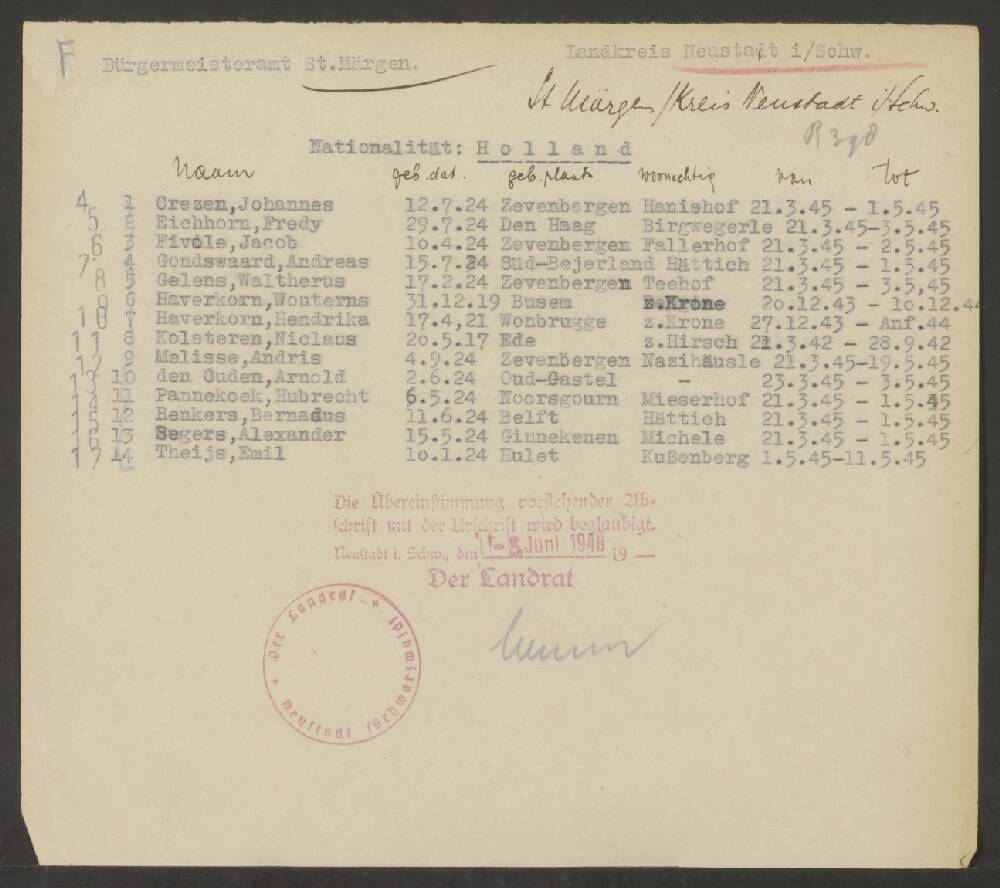 F
Bürgermeisteramt St.Märgen.
Landkreis Neustadt i/Schw.
St Märgen / Kreis Neustadt i/Schw.
R 398
Nationalität: H o l l a n d
Naam geb. dat. geb. plaats woonachtig van tot
4 1 Crezen,Johannes 12.7.24 Zevenbergen Hanishof 21.3.45 - 1.5.45
5 2 Eichhorn,Fredy 29.7.24 Den Haag Birgwegerle 21.3.45-3.5.45
6 3 Fivole,Jacob 1o.4.24 Zevenbergen Fallerhof 21.3.45 - 2.5.45
7 4 Gondswaard,Andreas 15.7.24 Süd-Bejerland Hättich 21.3.45 - 1.5.45
8 5 Gelens,Waltherus 17.2.24 Zevenbergen Teehof 21.3.45 - 3.5,45
9 6 Haverkorn,Wouterns 31.12.19 Busem z.Krone 2o.12.43 - 1o.12.44
10 7 Haverkorn,Hendrika 17.4,21 Wonbrugge z.Krone 27.12.43 - Anf.44
11 8 Kolsteren,Niclaus 2o.5.17 Ede z.Hirsch 21.3.42 - 28.9.42
12 9 Melisse,Andris 4.9.24 Zevenbergen Nazihäusle 21.3.45-19.5.45
13 10 den Ouden,Arnold 2.6.24 Oud-Gastel - 23.3.45 - 3.5.45
14 11 Pannekoek,Hubrecht 6.5.24 Noorsgourn Mieserhof 21.3.45 - 1.5.45
15 12 Renkers,Bernadus 11.6.24 Belft Hättich 21.3.45 - 1.5.45
16 13 Segers,Alexander 15.5.24 Ginnekenen Michele 21.3.45 - 1.5.45
17 14 Theijs,Emil 1o.1.24 Hulet Kußenberg 1.5.45-11.5.45
Die Übereinstimmung vorstehender Ab-
schrift mit der Urschrift wird beglaubigt.
Neustadt i. Schw., den Juni 1948 19 —
Der Landrat
* Der Landrat *
Neustadt (Schwarzwald)